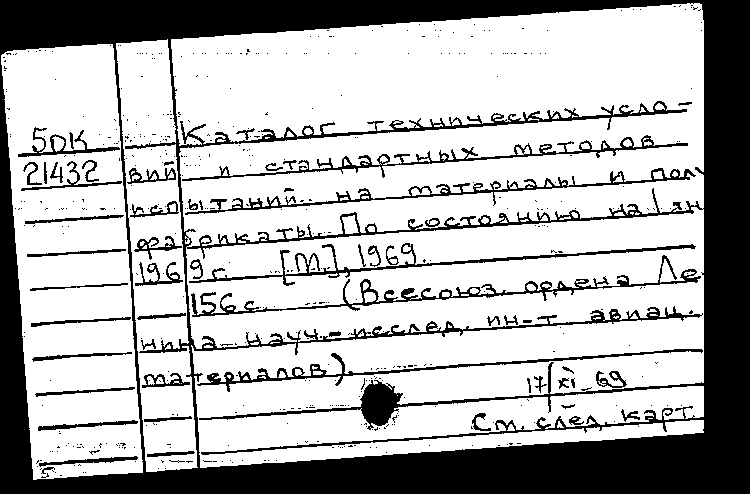 Каталог технических усло-
5DK
21432
вий и стандартных методов
испытаний на материалы и полу
фабрикаты. По состоянию на 1 ян
1969 г. [М.], 1969.
156 с. (Всесоюз. ордена Ле
нина науч.-исслед. ин-т авиац.
материалов).
17/XI-69
См. след. карт.
5